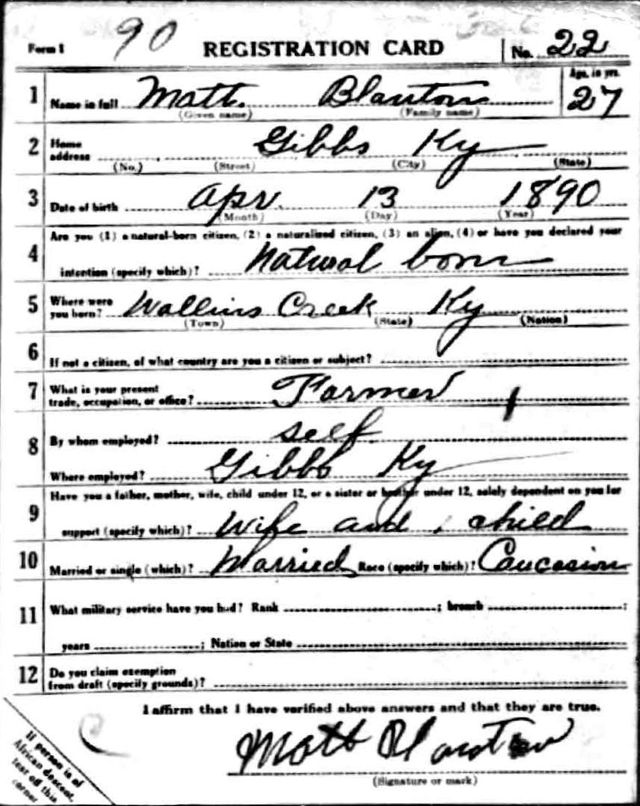 Form 1 90 REGISTRATION CARD No. 22
1 Name in full Matt Blanton Age, in yrs. 27
(Given name) (Family name)
2 Home address Gibbs Ky
(No.) (Street) (City) (State)
3 Date of birth Apr 13 1890
(Month) (Day) (Year)
4 Are you (1) a natural-born citizen, (2) a naturalized citizen, (3) an alien, (4) or have you declared your
intention (specify which)? Natural born
5 Where were you born? Wallins Creek Ky
(Town) (State) (Nation)
6 If not a citizen, of what country are you a citizen or subject?
7 What is your present trade, occupation, or office? Farmer
8 By whom employed? self
Where employed? Gibbs Ky
9 Have you a father, mother, wife, child under 12, or a sister or brother under 12, solely dependent on you for
support (specify which)? Wife and child
10 Married or single (which)? Married Race (specify which)? Caucasian
11 What military service have you had? Rank ; branch ;
years ; Nation or State
12 Do you claim exemption from draft (specify grounds)?
I affirm that I have verified above answers and that they are true.
Matt Blanton
(Signature or mark)
If person is of
African descent,
tear off this
corner